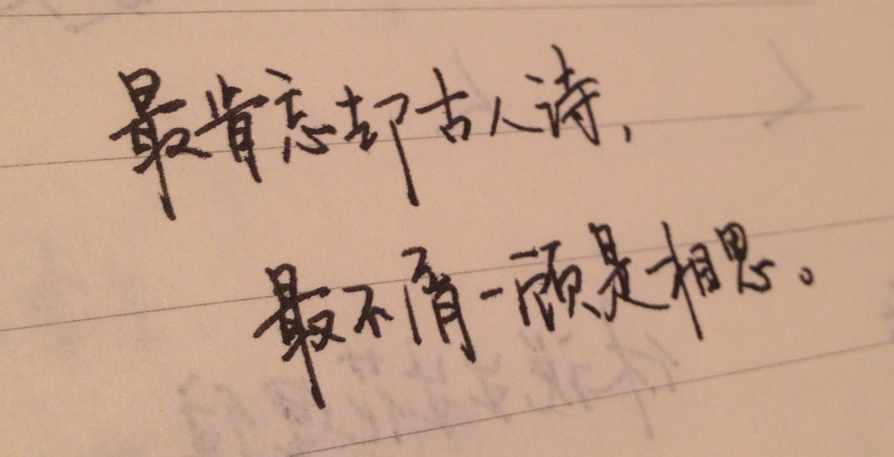 最肯忘却古人诗,
最不屑一顾是相思。